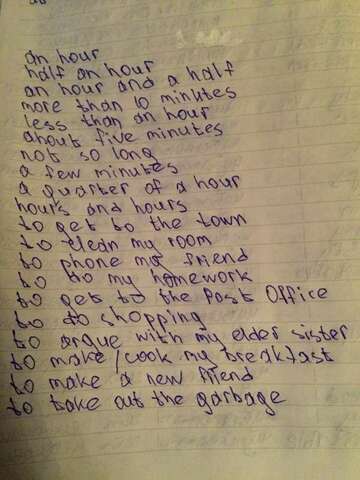 an hour
half an hour
an hour and a half
more than 10 minutes
less than an hour
about five minutes
not so long
a few minutes
a quarter of a hour
hours and hours
to get to the town
to clean my room
to phone my friend
to do my homework
to get to the Post Office
to do shopping
to argue with my elder sister
to make/cook my breakfast
to make a new friend
to take out the garbage